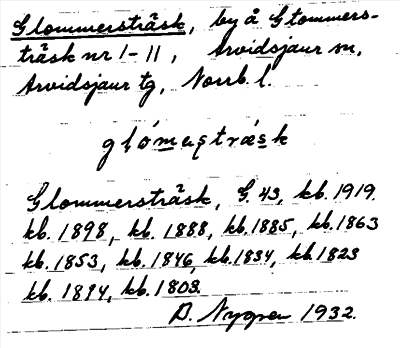 Glommersträsk, by å Glommers-
träsk nr 1-11, Arvidsjaur sn,
Arvidsjaur tg, Norrb. l.
glómeʂtrǽsk
Glommersträsk, G. 43, kb. 1919.
kb. 1898, kb. 1888, kb. 1885, kb. 1863
kb. 1853, kb. 1846, kb. 1834, kb 1823
kb. 1814, kb. 1803.
D. Nygren 1932.